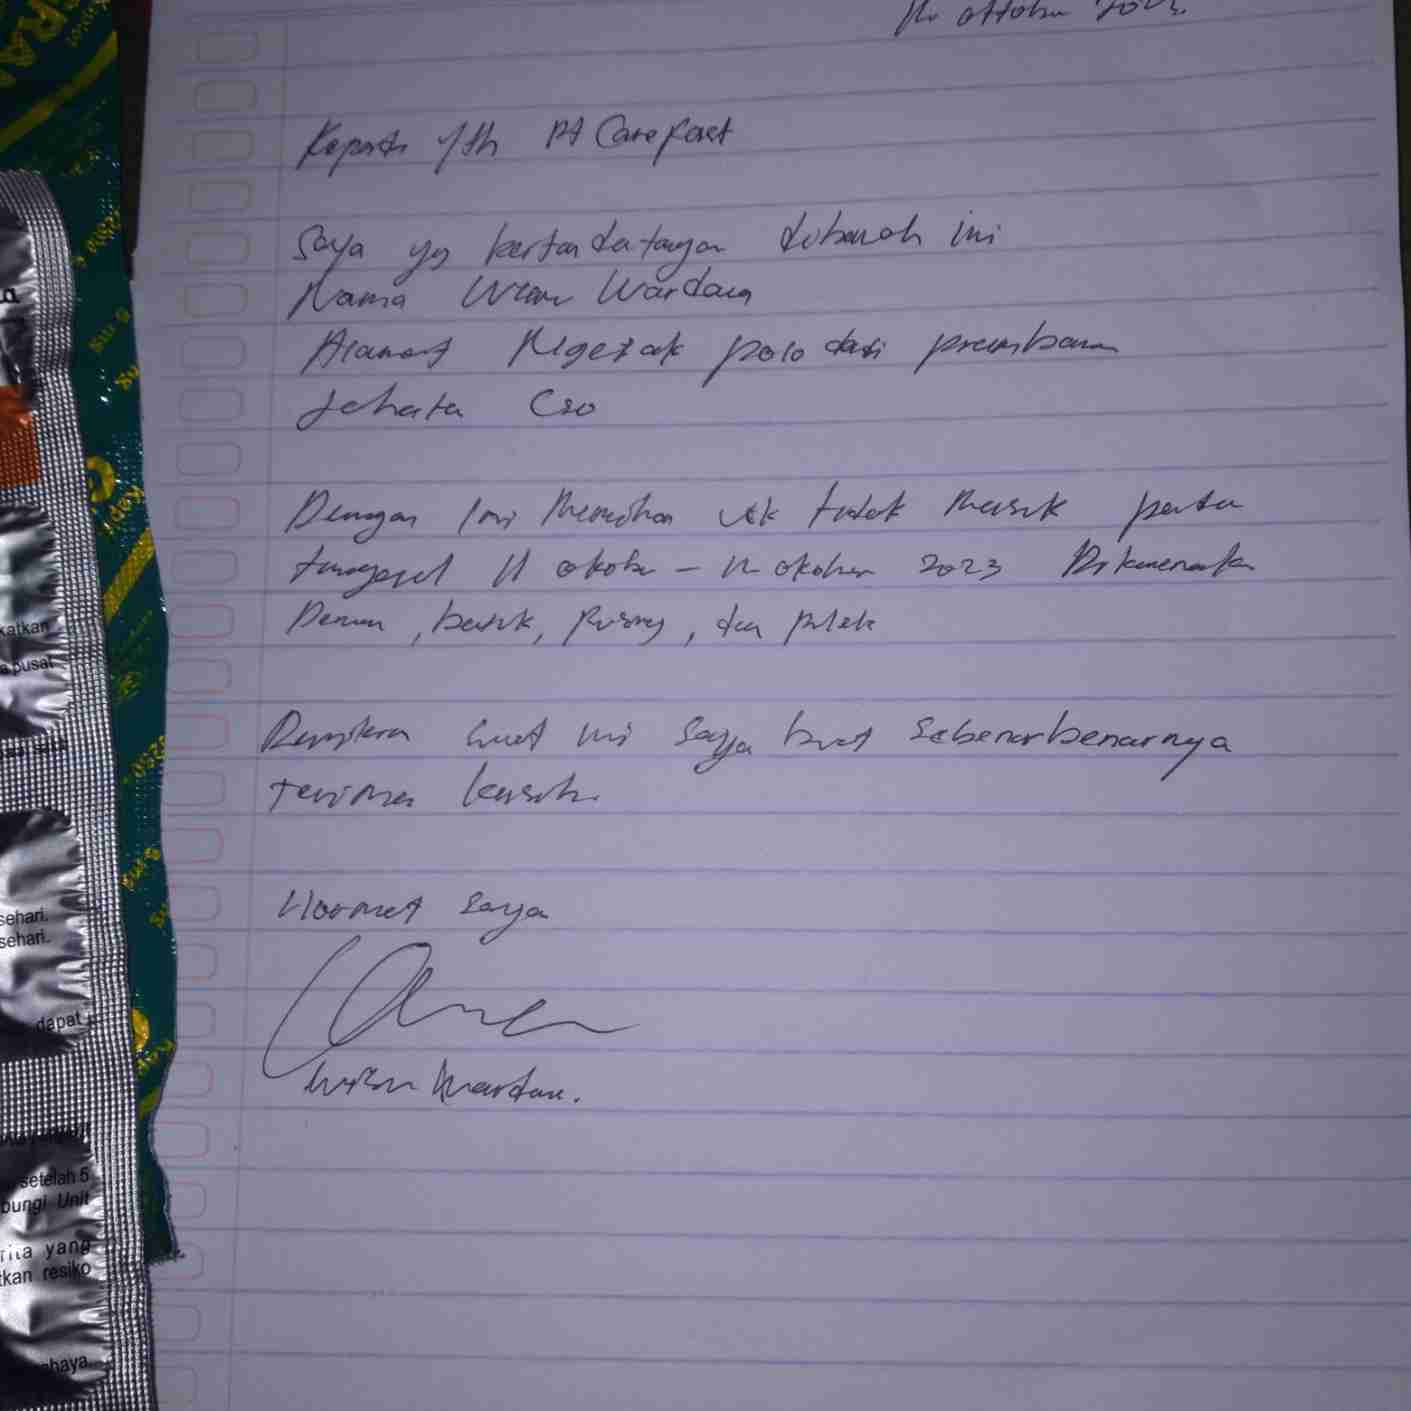 oktober 2023.
Kepada Yth PT Carefast
Saya yg bertandatangan dibawah ini
Nama Wisnu Wardana
Alamat Ngezak polodadi prambanan
Jabata Cso
Dengan Ini Memohon utk tidak Masuk pada
tanggal 11 oktober - 12 oktober 2023 Dikarenakan
Demam, batuk, pusing, dan pilek
Demikian surat ini saya buat sebenarbenarnya
terima kasih.
Hormat saya
Wisnu Wardana.
katkan
a pusat
sehari.
sehari.
dapat
setelah 5
bungi Unit
rita yang
tkan resiko
ahaya